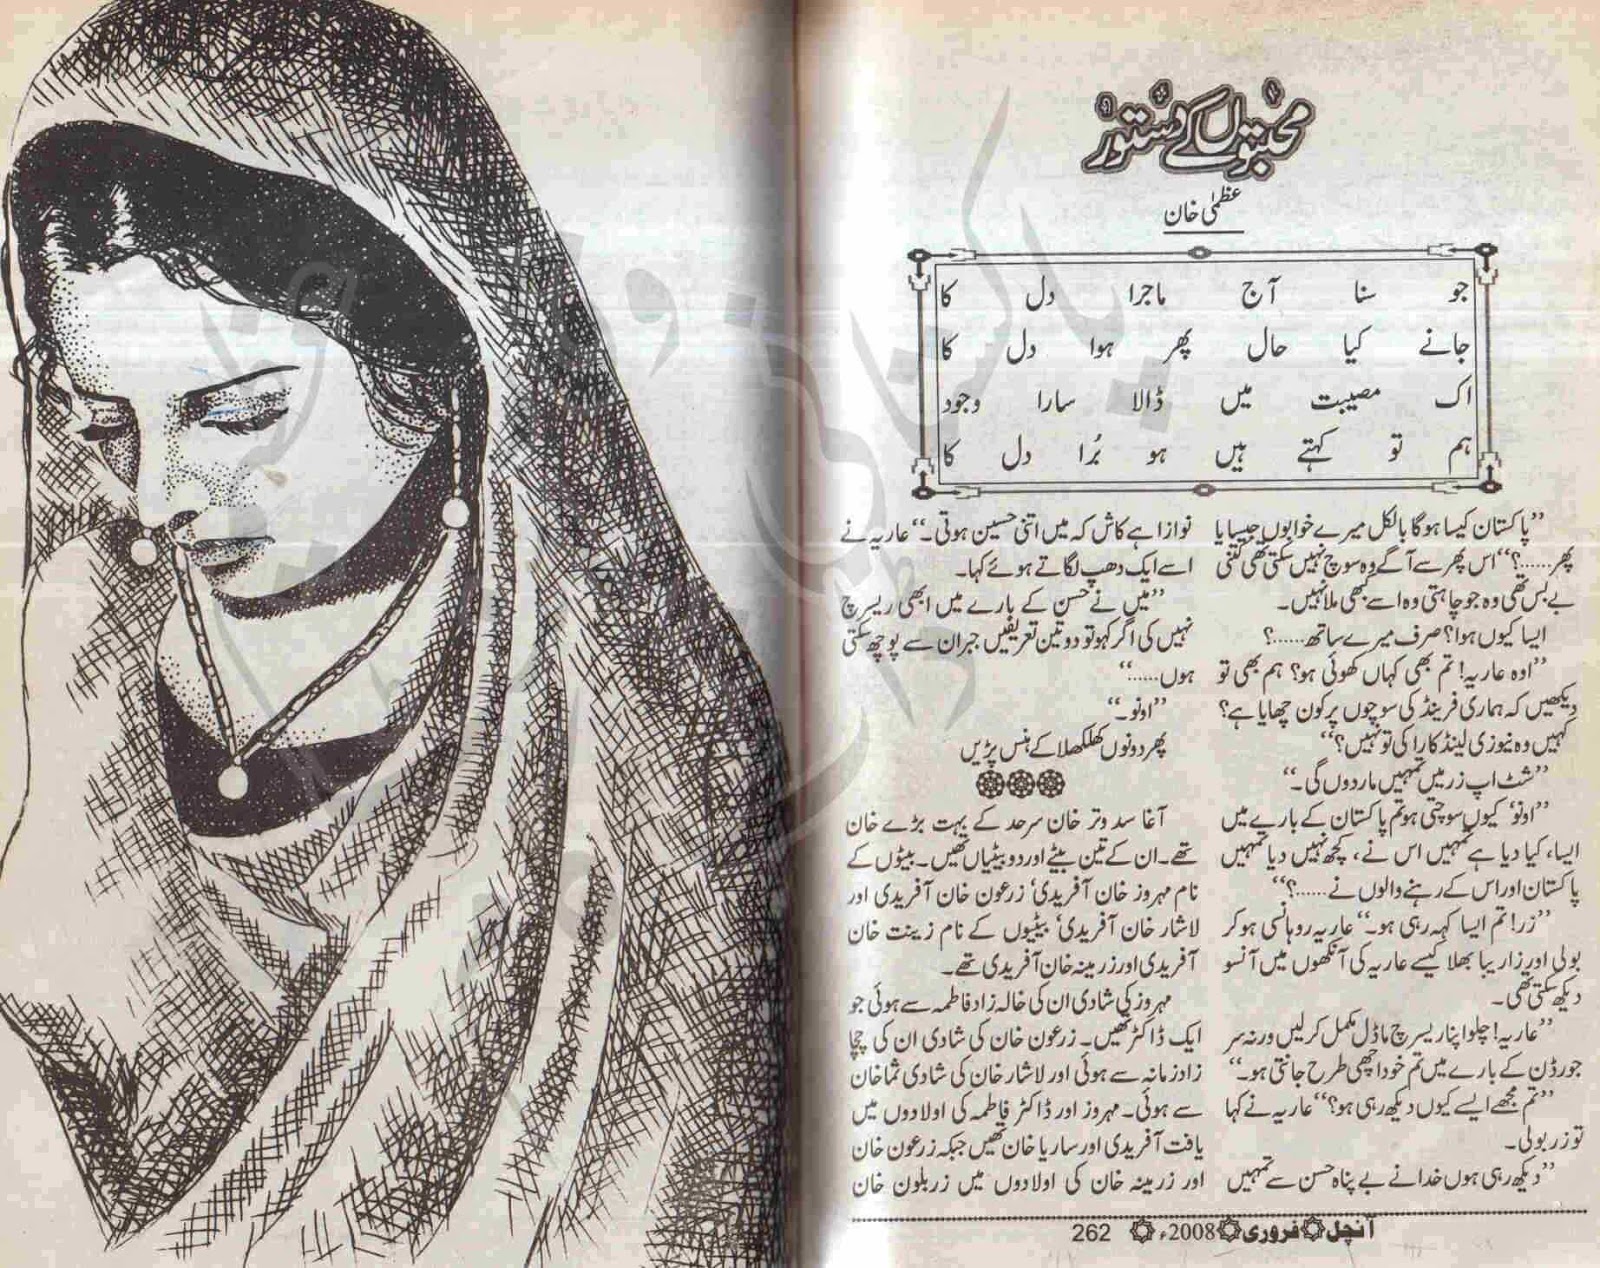 محبتوں کے دستور
عظمیٰ خان
جو سنا آج ماجرا دل کا
جانے کیا حال پھر ہوا دل کا
اک مصیبت میں ڈالا سارا وجود
ہم تو کہتے ہیں ہو بُرا دل کا
”پاکستان کیسا ہوگا بالکل میرے خوابوں جیسا یا
پھر......؟“ اس پھر سے آگے وہ سوچ نہیں سکتی تھی کتنی
بے بس تھی وہ جو چاہتی وہ اسے کبھی ملا نہیں۔
ایسا کیوں ہوا؟ صرف میرے ساتھ......؟
”اوہ عاریہ! تم بھی کہاں کھوئی ہو؟ ہم بھی تو
دیکھیں کہ ہماری فرینڈ کی سوچوں پر کون چھایا ہے؟
کہیں وہ نیوزی لینڈ کا را کی تو نہیں؟“
”شٹ اپ زر میں تمہیں مار دوں گی۔“
”اونو‘ کیوں سوچتی ہو تم پاکستان کے بارے میں
ایسا، کیا دیا ہے تمہیں اس نے، کچھ نہیں دیا تمہیں
پاکستان اور اس کے رہنے والوں نے......؟“
”زر! تم ایسا کہہ رہی ہو۔“ عاریہ روہانسی ہو کر
بولی اور زاریبا بھلا کیسے عاریہ کی آنکھوں میں آنسو
دیکھ سکتی تھی۔
”عاریہ! چلو اپنا ریسرچ ماڈل مکمل کر لیں ورنہ سر
جورڈن کے بارے میں تم خود اچھی طرح جانتی ہو۔“
”تم مجھے ایسے کیوں دیکھ رہی ہو؟“ عاریہ نے کہا
تو زر بولی۔
”دیکھ رہی ہوں خدا نے بے پناہ حسن سے تمہیں
نوازا ہے کاش کہ میں اتنی حسین ہوتی۔“ عاریہ نے
اسے ایک دھپ لگاتے ہوئے کہا۔
”میں نے حسن کے بارے میں ابھی ریسرچ
نہیں کی اگر کہو تو دو تین تعریفیں جبران سے پوچھ سکتی
ہوں......“
”اونو۔“
پھر دونوں کھلکھلا کے ہنس پڑیں
آغا سد وتر خان سرحد کے بہت بڑے خان
تھے۔ ان کے تین بیٹے اور دو بیٹیاں تھیں۔ بیٹوں کے
نام مہروز خان آفریدی‘ زرعون خان آفریدی اور
لاشار خان آفریدی‘ بیٹیوں کے نام زینت خان
آفریدی اور زرمینہ خان آفریدی تھے۔
مہروز کی شادی ان کی خالہ زاد فاطمہ سے ہوئی جو
ایک ڈاکٹر تھیں۔ زرعون خان کی شادی ان کی چچا
زاد زمانہ سے ہوئی اور لاشار خان کی شادی شما خان
سے ہوئی۔ مہروز اور ڈاکٹر فاطمہ کی اولادوں میں
یافت آفریدی اور ساریا خان تھیں جبکہ زرعون خان
اور زرمینہ خان کی اولادوں میں زریلون خان
آنچل فروری 2008ء 262